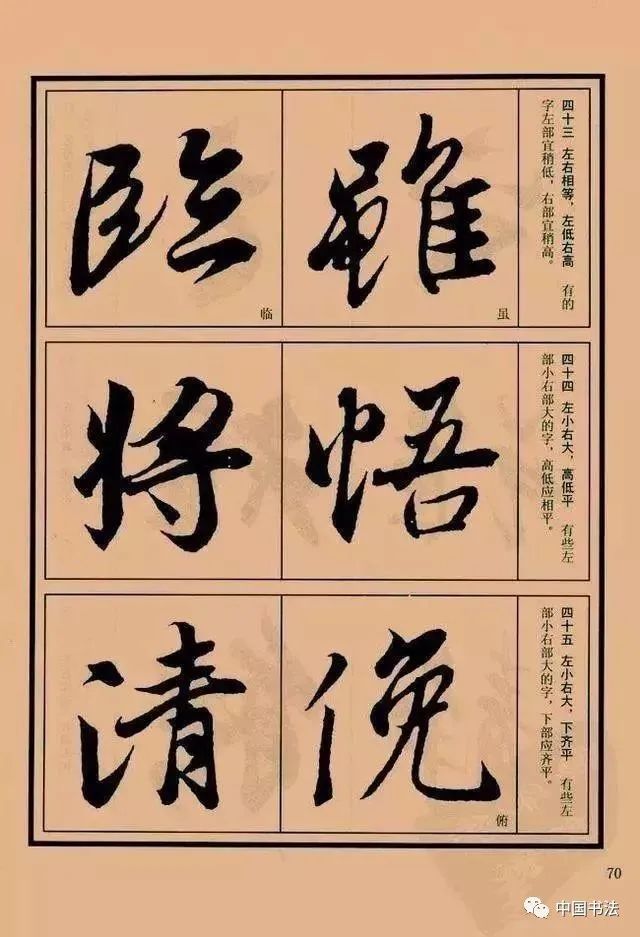 四十三 左右相等，左低右高 有的
字左部宜稍低，右部宜稍高。
雖
虽
臨
临
四十四 左小右大，高低平 有些左
部小右部大的字，高低应相平。
悟
将
四十五 左小右大，下齐平 有些左
部小右部大的字，下部应齐平。
俛
俯
清
70
中国书法